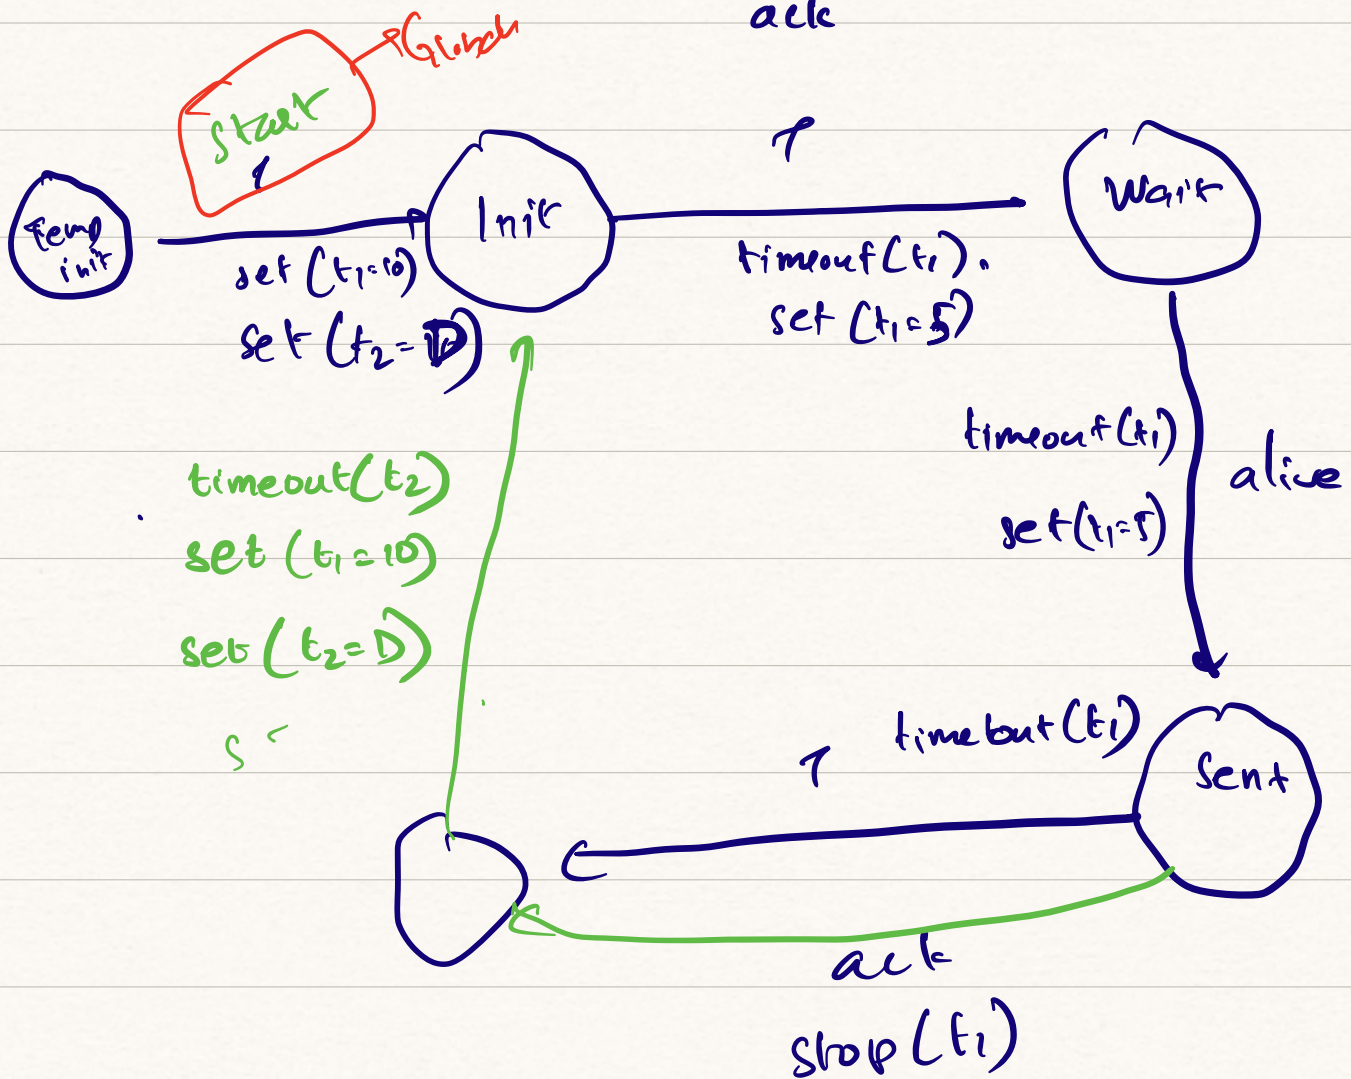 ack
start
temp
init
Init
Wait
set (t1=10)
set (t2=D)
timeout(t1).
set (t1=5)
timeout(t1)
set(t1=5)
alive
timeout(t2)
set (t1=10)
set (t2=D)
s
timeout(t1)
Sent
ack
stop(t1)